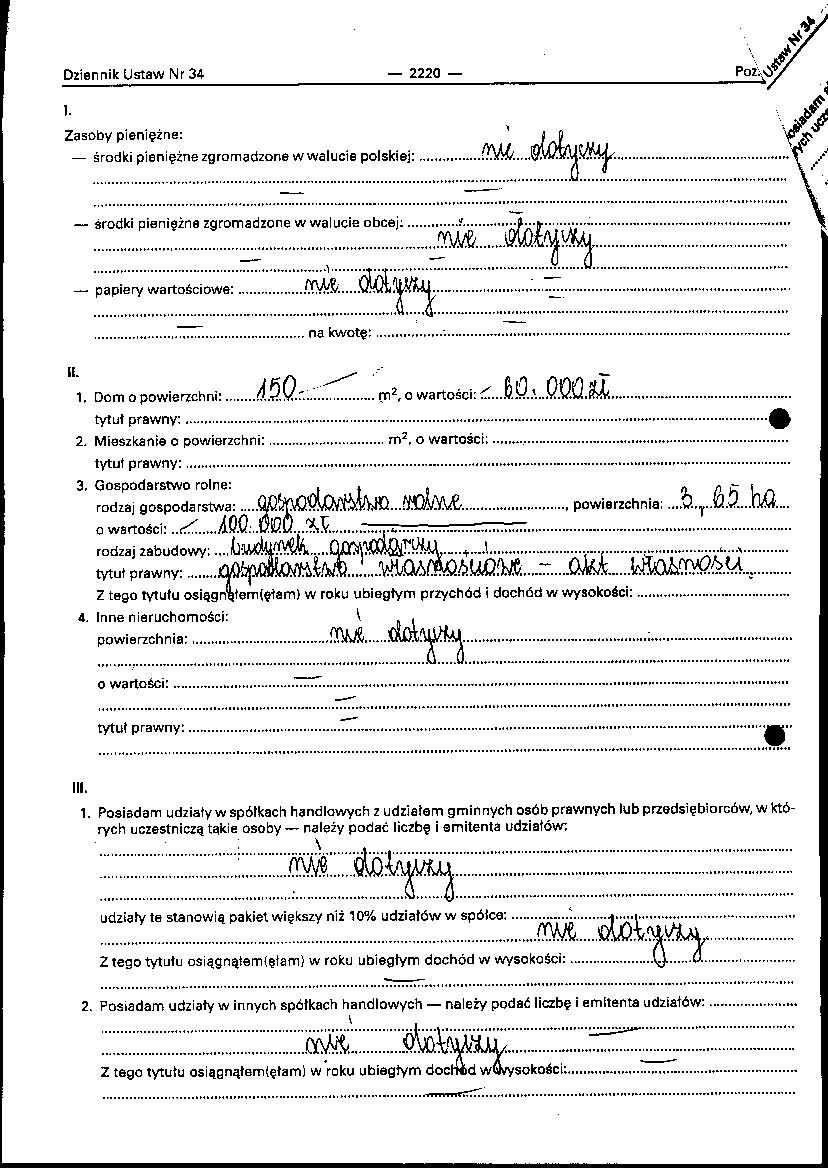 Dziennik Ustaw Nr 34 — 2220 — Poz.
Ustaw Nr 34
I.
Zasoby pieniężne:
— środki pieniężne zgromadzone w walucie polskiej: nie dotyczy
— środki pieniężne zgromadzone w walucie obcej:
nie dotyczy
— papiery wartościowe: nie dotyczy
na kwotę:
II.
1. Dom o powierzchni: 150 m², o wartości: 60.000 zł
tytuł prawny:
2. Mieszkanie o powierzchni: m², o wartości:
tytuł prawny:
3. Gospodarstwo rolne:
rodzaj gospodarstwa: gospodarstwo rolne, powierzchnia: 3,65 ha
o wartości: 100.000 zł
rodzaj zabudowy: budynek gospodarczy
tytuł prawny: gospodarstwo własnościowe - akt własności
Z tego tytułu osiągnąłem(ęłam) w roku ubiegłym przychód i dochód w wysokości:
4. Inne nieruchomości:
powierzchnia: nie dotyczy
o wartości:
tytuł prawny:
III.
1. Posiadam udziały w spółkach handlowych z udziałem gminnych osób prawnych lub przedsiębiorców, w któ-
rych uczestniczą takie osoby — należy podać liczbę i emitenta udziałów:
nie dotyczy
udziały te stanowią pakiet większy niż 10% udziałów w spółce:
nie dotyczy
Z tego tytułu osiągnąłem(ęłam) w roku ubiegłym dochód w wysokości:
2. Posiadam udziały w innych spółkach handlowych — należy podać liczbę i emitenta udziałów:
nie dotyczy
Z tego tytułu osiągnąłem(ęłam) w roku ubiegłym dochód w wysokości: